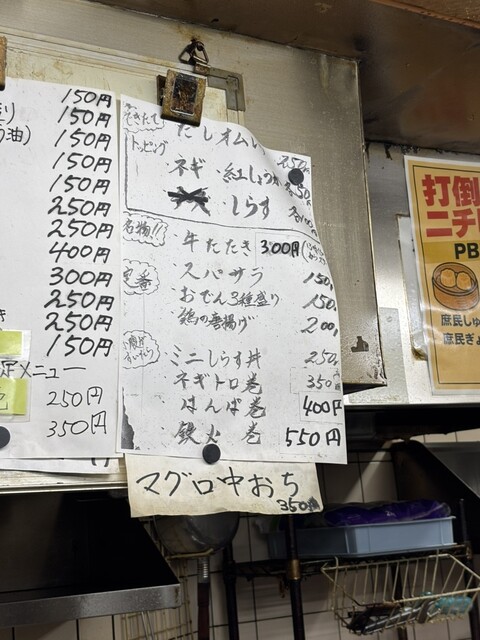 150円
150円
油) 150円
150円
150円
250円
250円
400円
300円
250円
250円
150円
メニュー
250円
350円
できたて
だしオムレ
250
トッピング
ネギ・紅しょうが 各50
しらす 各100
名物!!
牛たたき 300円
定番
スパサラ 150
おでん3種盛り 150
鶏の唐揚げ 200
ミニしらす丼 250
ネギトロ巻 350
はんぱ巻 400円
鉄火巻 550円
マグロ中おち
350
打倒
ニチ
PB
庶民し
庶民ぎ